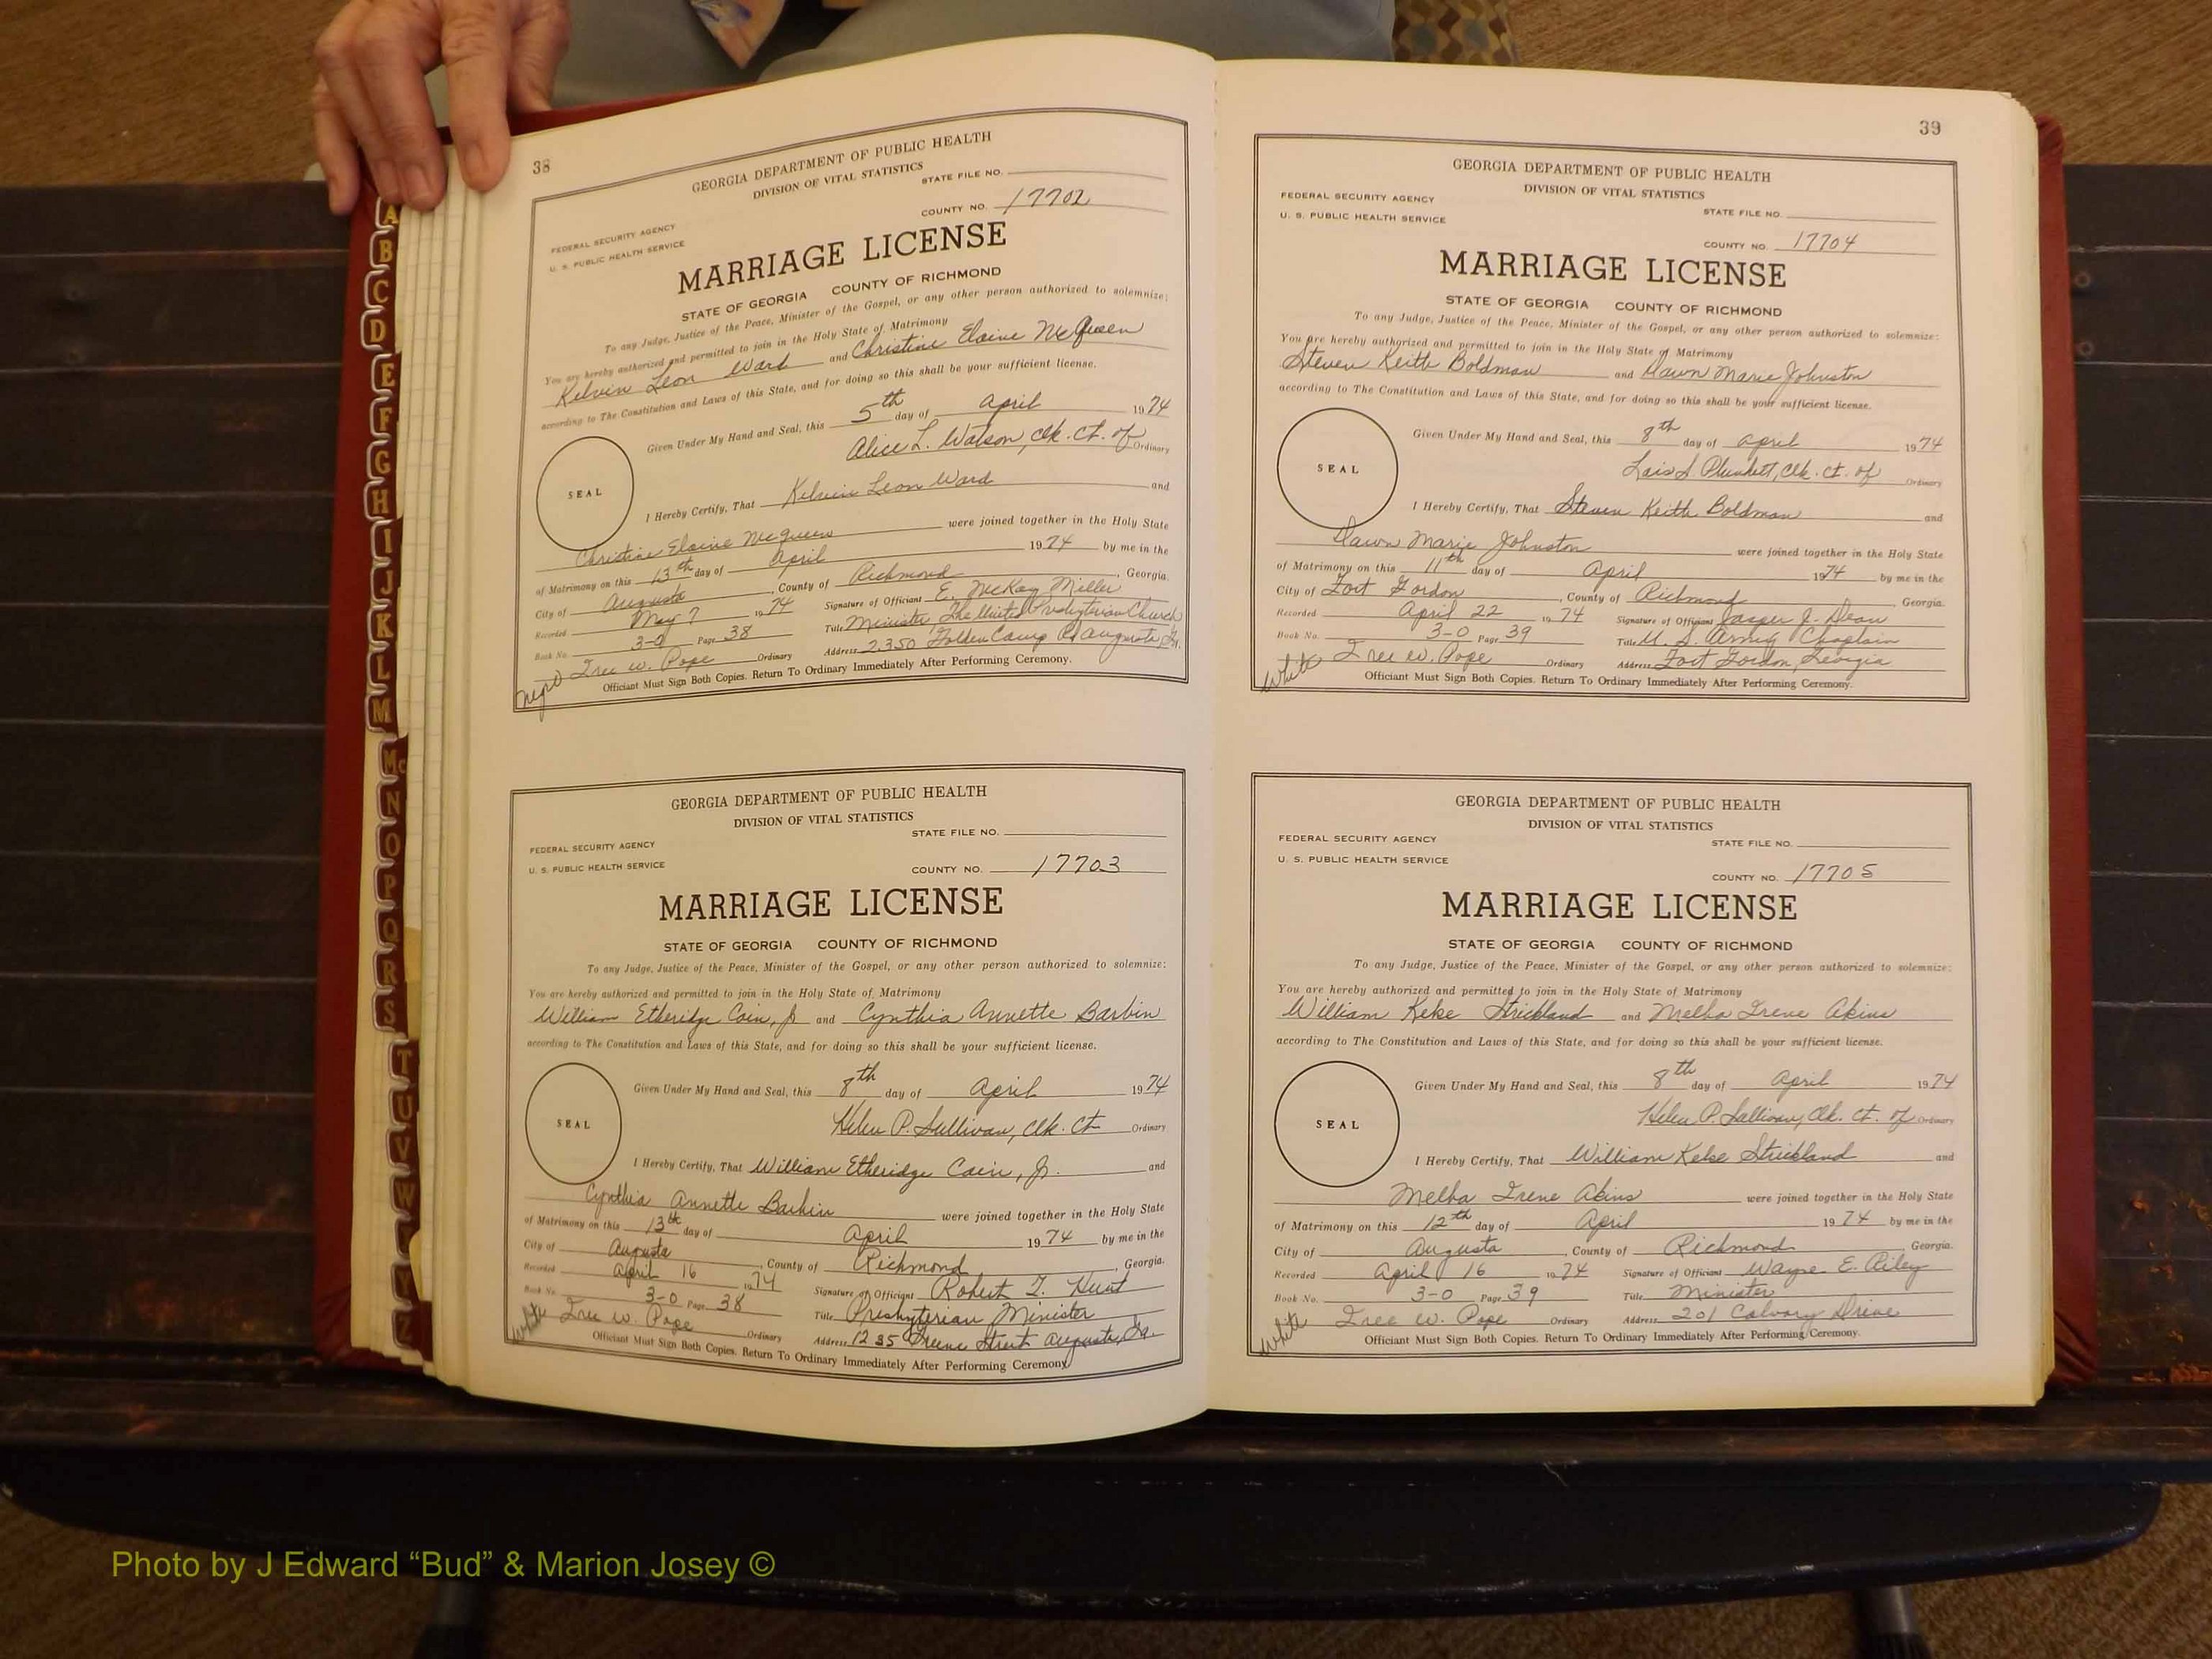 A
B
C
D
E
F
G
H
I
J
K
L
M
Mc
N
O
P
Q
R
S
T
U
V
W
Y
Z
38
GEORGIA DEPARTMENT OF PUBLIC HEALTH
DIVISION OF VITAL STATISTICS
STATE FILE NO.
FEDERAL SECURITY AGENCY
U. S. PUBLIC HEALTH SERVICE
COUNTY NO. 17702
MARRIAGE LICENSE
STATE OF GEORGIA COUNTY OF RICHMOND
To any Judge, Justice of the Peace, Minister of the Gospel, or any other person authorized to solemnize:
You are hereby authorized and permitted to join in the Holy State of Matrimony
Kelvin Leon Ward and Christine Elaine McQueen
according to The Constitution and Laws of this State, and for doing so this shall be your sufficient license.
Given Under My Hand and Seal, this 5th day of April 1974
Alice L. Watson, clk. ct. of Ordinary
SEAL
I Hereby Certify, That Kelvin Leon Ward and
Christine Elaine McQueen were joined together in the Holy State
of Matrimony on this 13th day of April 1974 by me in the
City of Augusta, County of Richmond, Georgia.
Recorded May 7 1974 Signature of Officiant E. McKay Miller
Book No. 3-O Page 38 Title Minister, The United Presbyterian Church
Tree W. Pope Ordinary Address 2350 Golden Camp Rd Augusta, Ga.
Negro
Officiant Must Sign Both Copies. Return To Ordinary Immediately After Performing Ceremony.
GEORGIA DEPARTMENT OF PUBLIC HEALTH
DIVISION OF VITAL STATISTICS
STATE FILE NO.
FEDERAL SECURITY AGENCY
U. S. PUBLIC HEALTH SERVICE
COUNTY NO. 17703
MARRIAGE LICENSE
STATE OF GEORGIA COUNTY OF RICHMOND
To any Judge, Justice of the Peace, Minister of the Gospel, or any other person authorized to solemnize:
You are hereby authorized and permitted to join in the Holy State of Matrimony
William Etheridge Cain, Jr and Cynthia Annette Barbin
according to The Constitution and Laws of this State, and for doing so this shall be your sufficient license.
Given Under My Hand and Seal, this 8th day of April 1974
Helen P. Sullivan, clk. ct Ordinary
SEAL
I Hereby Certify, That William Etheridge Cain, Jr. and
Cynthia Annette were joined together in the Holy State
of Matrimony on this 13th day of April 1974 by me in the
City of Augusta, County of Richmond, Georgia.
Recorded April 16 1974 Signature of Officiant Robert
Book No. 3-O Page 38 Title Presbyterian Minister
White Tree W. Pope Ordinary Address 1235 Greene Street Augusta, Ga.
Officiant Must Sign Both Copies. Return To Ordinary Immediately After Performing Ceremony
39
GEORGIA DEPARTMENT OF PUBLIC HEALTH
DIVISION OF VITAL STATISTICS
FEDERAL SECURITY AGENCY
STATE FILE NO.
U. S. PUBLIC HEALTH SERVICE
COUNTY NO. 17704
MARRIAGE LICENSE
STATE OF GEORGIA COUNTY OF RICHMOND
To any Judge, Justice of the Peace, Minister of the Gospel, or any other person authorized to solemnize:
You are hereby authorized and permitted to join in the Holy State of Matrimony
Steven Keith Boldman and Dawn Marie Johnston
according to The Constitution and Laws of this State, and for doing so this shall be your sufficient license.
Given Under My Hand and Seal, this 8th day of April 1974
Lois S Plunkett, clk. ct. of Ordinary
SEAL
I Hereby Certify, That Steven Keith Boldman and
Dawn Marie Johnston were joined together in the Holy State
of Matrimony on this 11th day of April 1974 by me in the
City of Fort Gordon, County of Richmond, Georgia.
Recorded April 22 1974 Signature of Officiant Jasper J. Dean
Book No. 3-O Page 39 Title U. S. Army Chaplain
White Tree W. Pope Ordinary Address Fort Gordon, Georgia
Officiant Must Sign Both Copies. Return To Ordinary Immediately After Performing Ceremony.
GEORGIA DEPARTMENT OF PUBLIC HEALTH
DIVISION OF VITAL STATISTICS
FEDERAL SECURITY AGENCY
STATE FILE NO.
U. S. PUBLIC HEALTH SERVICE
COUNTY NO. 17705
MARRIAGE LICENSE
STATE OF GEORGIA COUNTY OF RICHMOND
To any Judge, Justice of the Peace, Minister of the Gospel, or any other person authorized to solemnize:
You are hereby authorized and permitted to join in the Holy State of Matrimony
William Keke Strickland and Melba Irene Akins
according to The Constitution and Laws of this State, and for doing so this shall be your sufficient license.
Given Under My Hand and Seal, this 8th day of April 1974
Helen P. Sullivan, Clk. ct. of Ordinary
SEAL
I Hereby Certify, That William Keke Strickland and
Melba Irene Akins were joined together in the Holy State
of Matrimony on this 12th day of April 1974 by me in the
City of Augusta, County of Richmond Georgia.
Recorded April 16 1974 Signature of Officiant Wayne E. Riley
Book No. 3-O Page 39 Title Minister
White Tree W. Pope Ordinary Address 201 Calvary Drive
Officiant Must Sign Both Copies. Return To Ordinary Immediately After Performing Ceremony.
Photo by J Edward “Bud” & Marion Josey ©